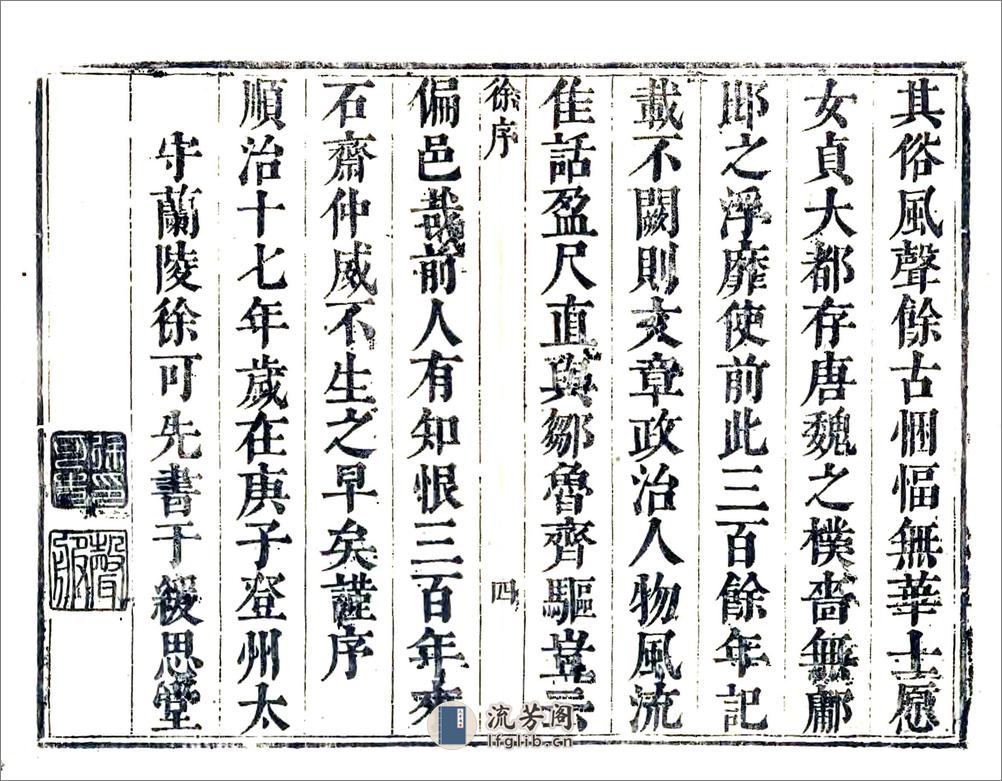 其俗風聲餘古悃愊無華士愿
女貞大都存唐魏之樸嗇無鄘
邶之浮靡使前此三百餘年記
載不闕則文章政治人物風流
佳話盈尺直與鄒魯齊驅豈云
徐序
四
偏邑哉前人有知恨三百年來
石齋仲威不生之早矣謹序
順治十七年歲在庚子登州太
守蘭陵徐可先書于緩思堂
流芳阁
lfglib.cn